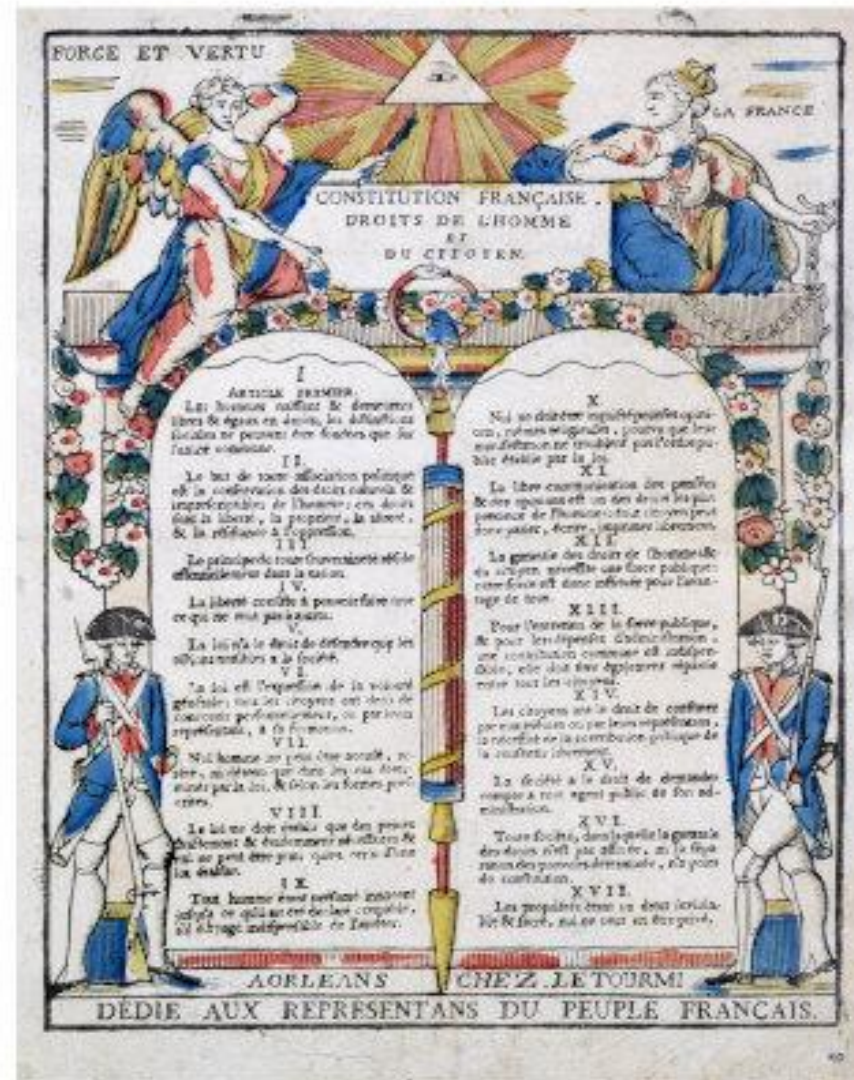 FORCE ET VERTU
LA FRANCE
CONSTITUTION FRANÇAISE.
DROITS DE L'HOMME
ET
DU CITOYEN.
I
ARTICLE PREMIER.
Les hommes naissent & demeurent
libres & égaux en droits, les distinctions
sociales ne peuvent être fondées que sur
II.
Le but de toute association politique
est la conservation des droits naturels &
imprescriptibles de l'homme; ces droits
sont la liberté, la propriété, la sûreté,
& la résistance à l'oppression.
III.
Le principe de toute souveraineté réside
essentiellement dans la nation.
IV.
La liberté consiste à pouvoir faire tout
ce qui ne nuit pas
V.
La loi n'a le droit de défendre que les
à la société.
VI.
La loi est l'expression de la volonté
générale; tous les citoyens ont droit de
concourir personnellement, ou par leurs
représentans, à sa formation.
VII.
Nul homme ne peut être accusé,
que dans les cas
par la loi, & selon les formes
VIII.
La loi ne doit établir que des peines
strictement & évidemment nécessaires &
nul ne peut être puni
IX.
Tout homme étant présumé innocent
jusqu'à ce qu'il ait été déclaré coupable,
X.
Nul ne doit être inquiété pour ses opini-
ons, mêmes religieuses, pourvu que leur
manifestation ne trouble pas l'ordre pu-
blic établie par la loi.
XI.
La libre communication des pensées
& des opinions est un des droits les plus
précieux de l'homme: tout citoyen peut
donc parler, écrire, imprimer librement.
XII.
La garantie des droits de l'homme &
du citoyen nécessite une force publique:
cette force est donc instituée pour l'avan-
tage de tous.
XIII.
Pour l'entretien de la force publique,
& pour les dépenses d'administration,
une contribution commune est indispen-
sable, elle doit être également répartie
entre tous les citoyens.
XIV.
Les citoyens ont le droit de constater
par eux mêmes ou par leurs représentans,
la nécessité de la contribution publique de
la consentir librement.
XV.
La société a le droit de demander
compte à tout agent public de son ad-
ministration.
XVI.
Toute société, dans laquelle la garantie
des droits n'est pas assurée, ni la sépa-
ration des pouvoirs déterminée, n'a point
de constitution.
XVII.
Les propriétés étant un droit inviola-
ble & sacré, nul ne peut en être privé.
AORLEANS CHEZ LETOURMI
DÉDIE AUX REPRESENTANS DU PEUPLE FRANÇAIS.